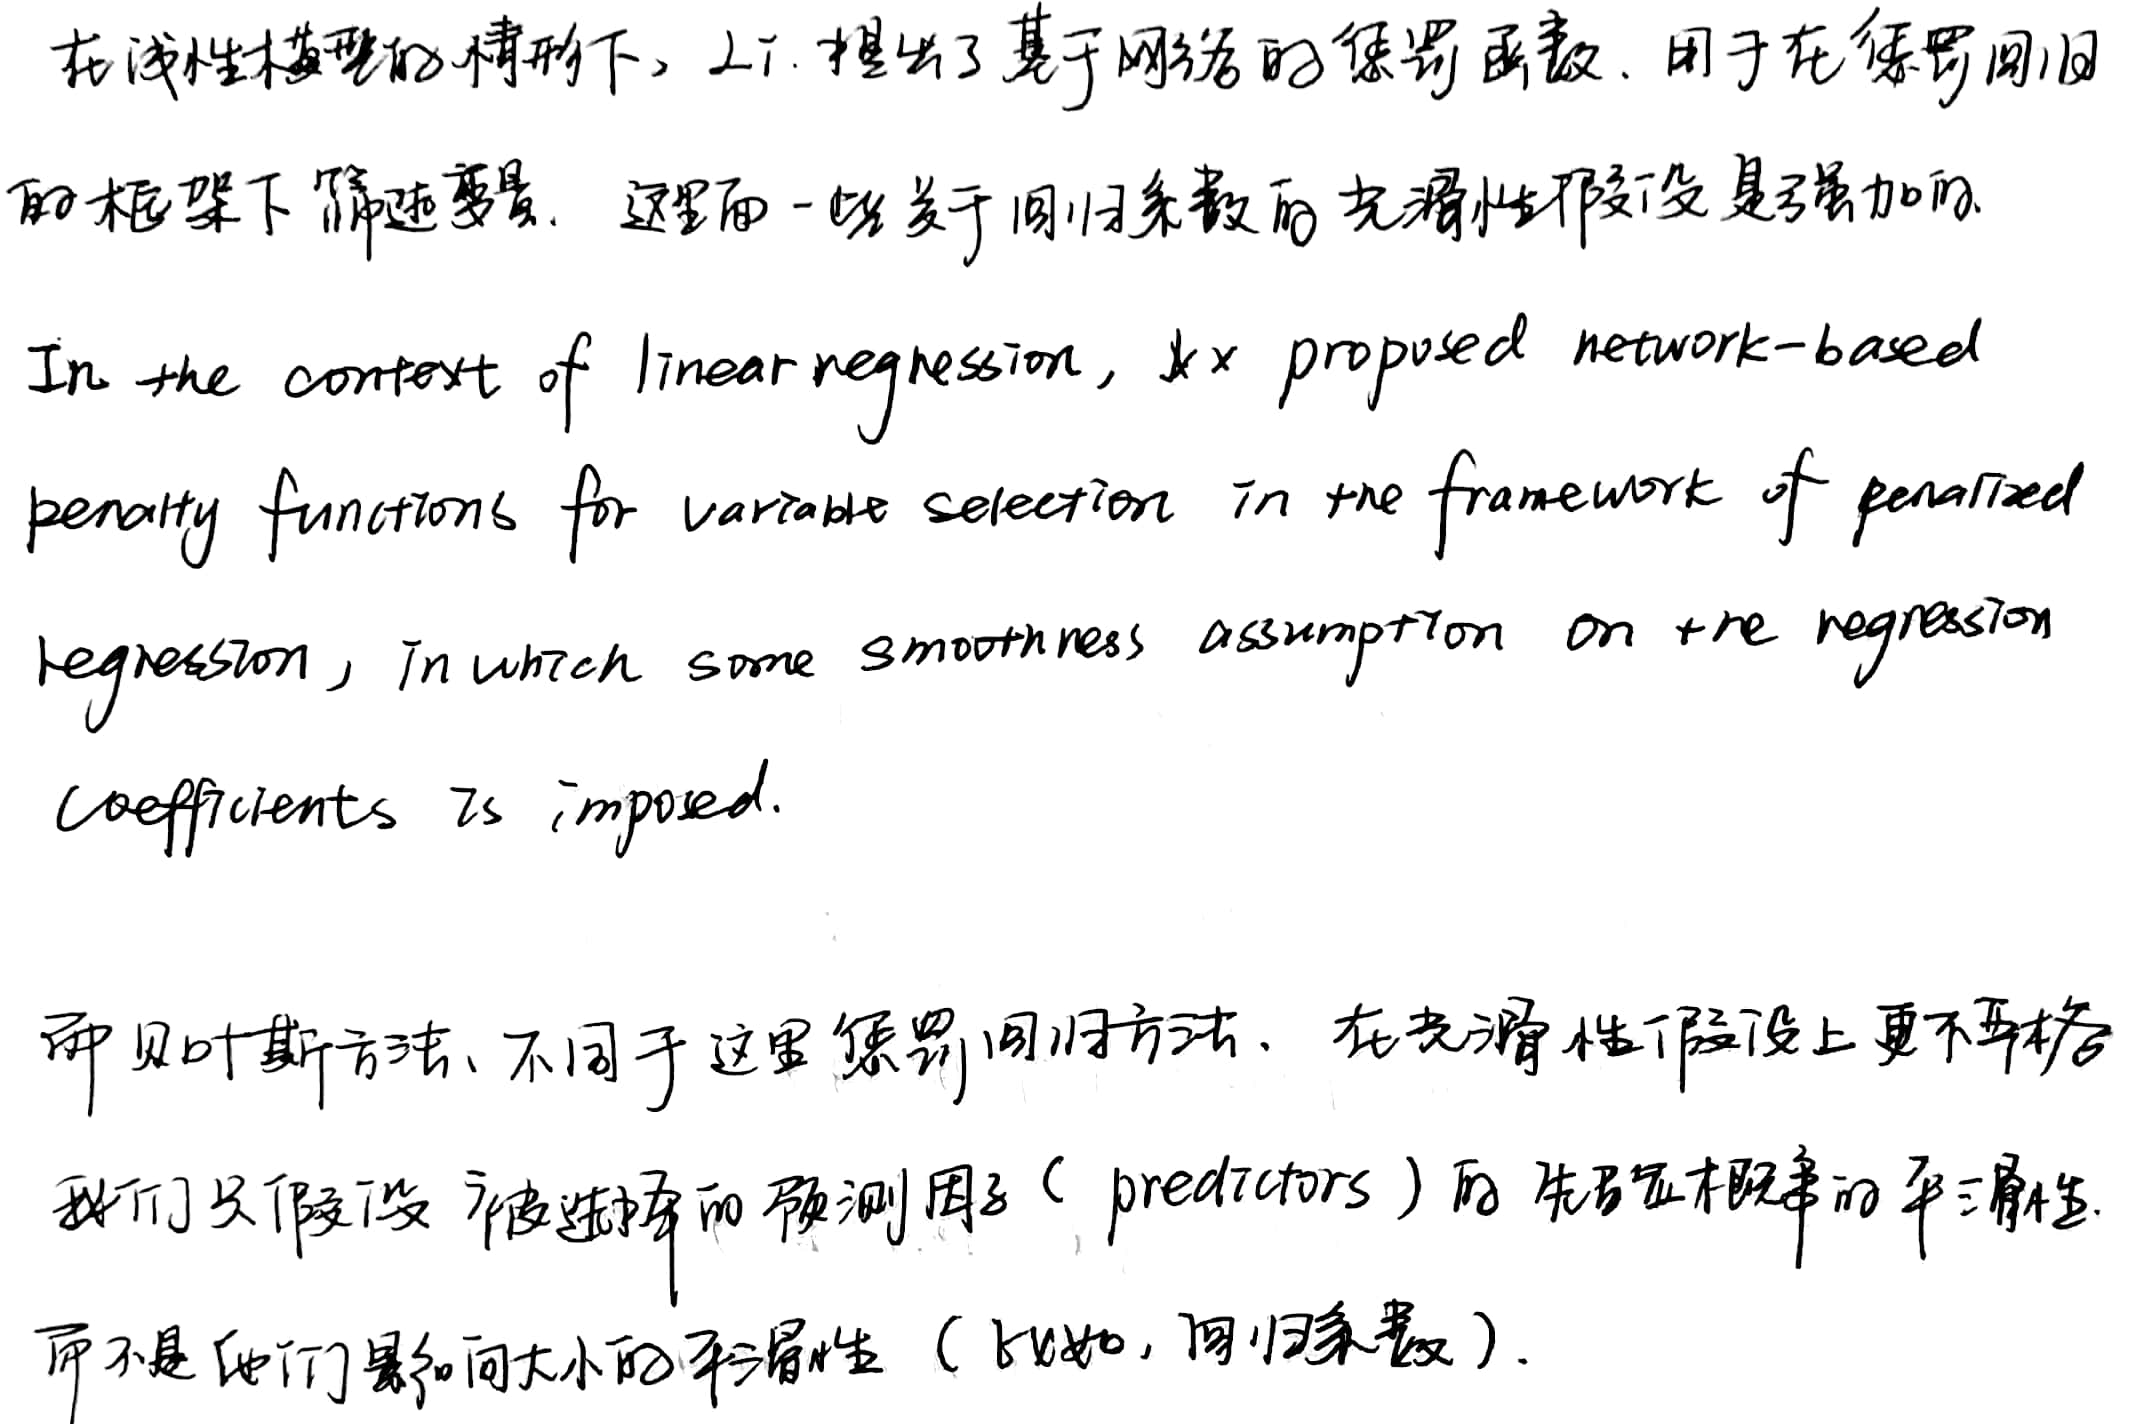 在浅性模型的情形下，Li. 提出了基于网络的惩罚函数. 用于在惩罚回归
的框架下筛选变量. 这里面一些关于回归系数的光滑性假设是强加的.
In the context of linear regression, xx proposed network-based
penalty functions for variable selection in the framework of penalized
regression, in which some smoothness assumption on the regression
coefficients is imposed.
而贝叶斯方法、不同于这里惩罚回归方法. 在光滑性假设上更不严格
我们只假设被选择的预测因子( predictors )的先验概率的平滑性.
而不是他们影响大小的平滑性 ( 比如, 回归系数 ).